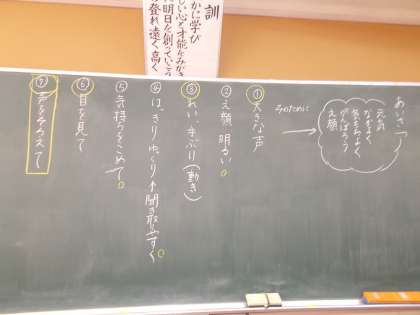 訓
かに学び
しい心と才能をみがき
に明日を創ってこう
登れ遠く高く
あいさつ
元気
なかよく
気もちよく
がんばろう
え顔
そのために
① 大きな声
② え顔、明るい。
③ れい、手ぶり(動き)
④ はっきりゆっくり→聞き取りやすく。
⑤ 気持ちをこめて。
⑥ 目を見て
⑦ 声をそろえて